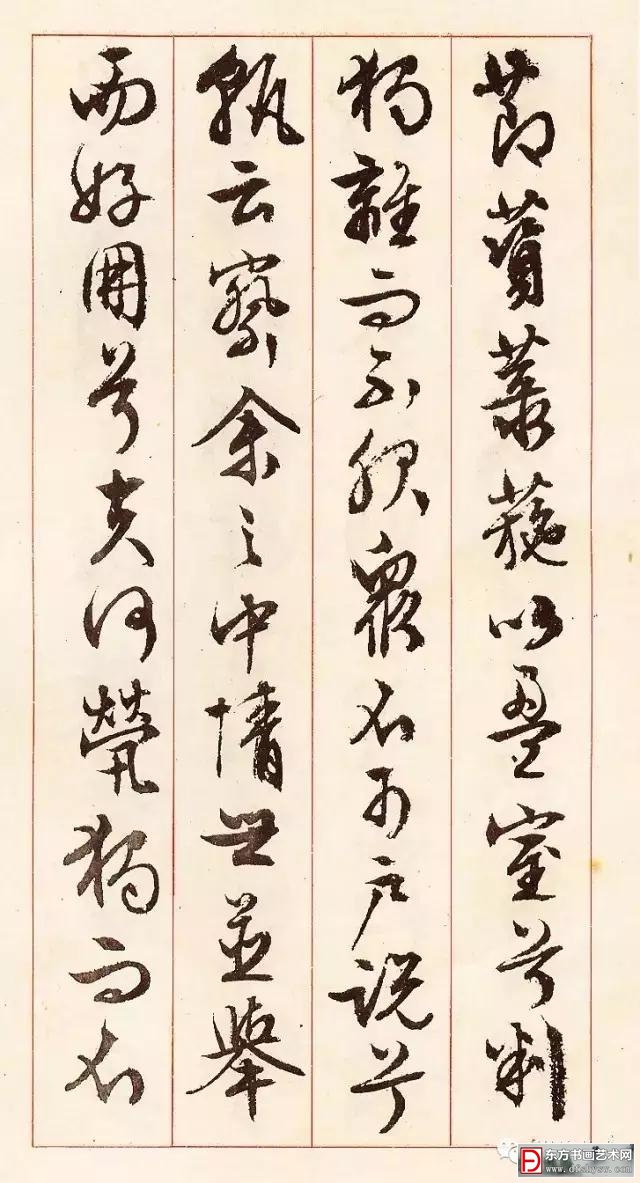 節薋菉葹以盈室兮判
獨離而不服衆不可户説兮
孰云察余之中情世並舉
而好朋兮夫何煢獨而不
东方书画艺术网